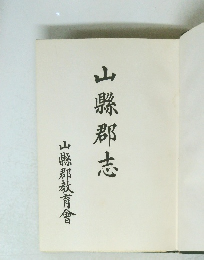 山縣郡志
山縣郡教育會